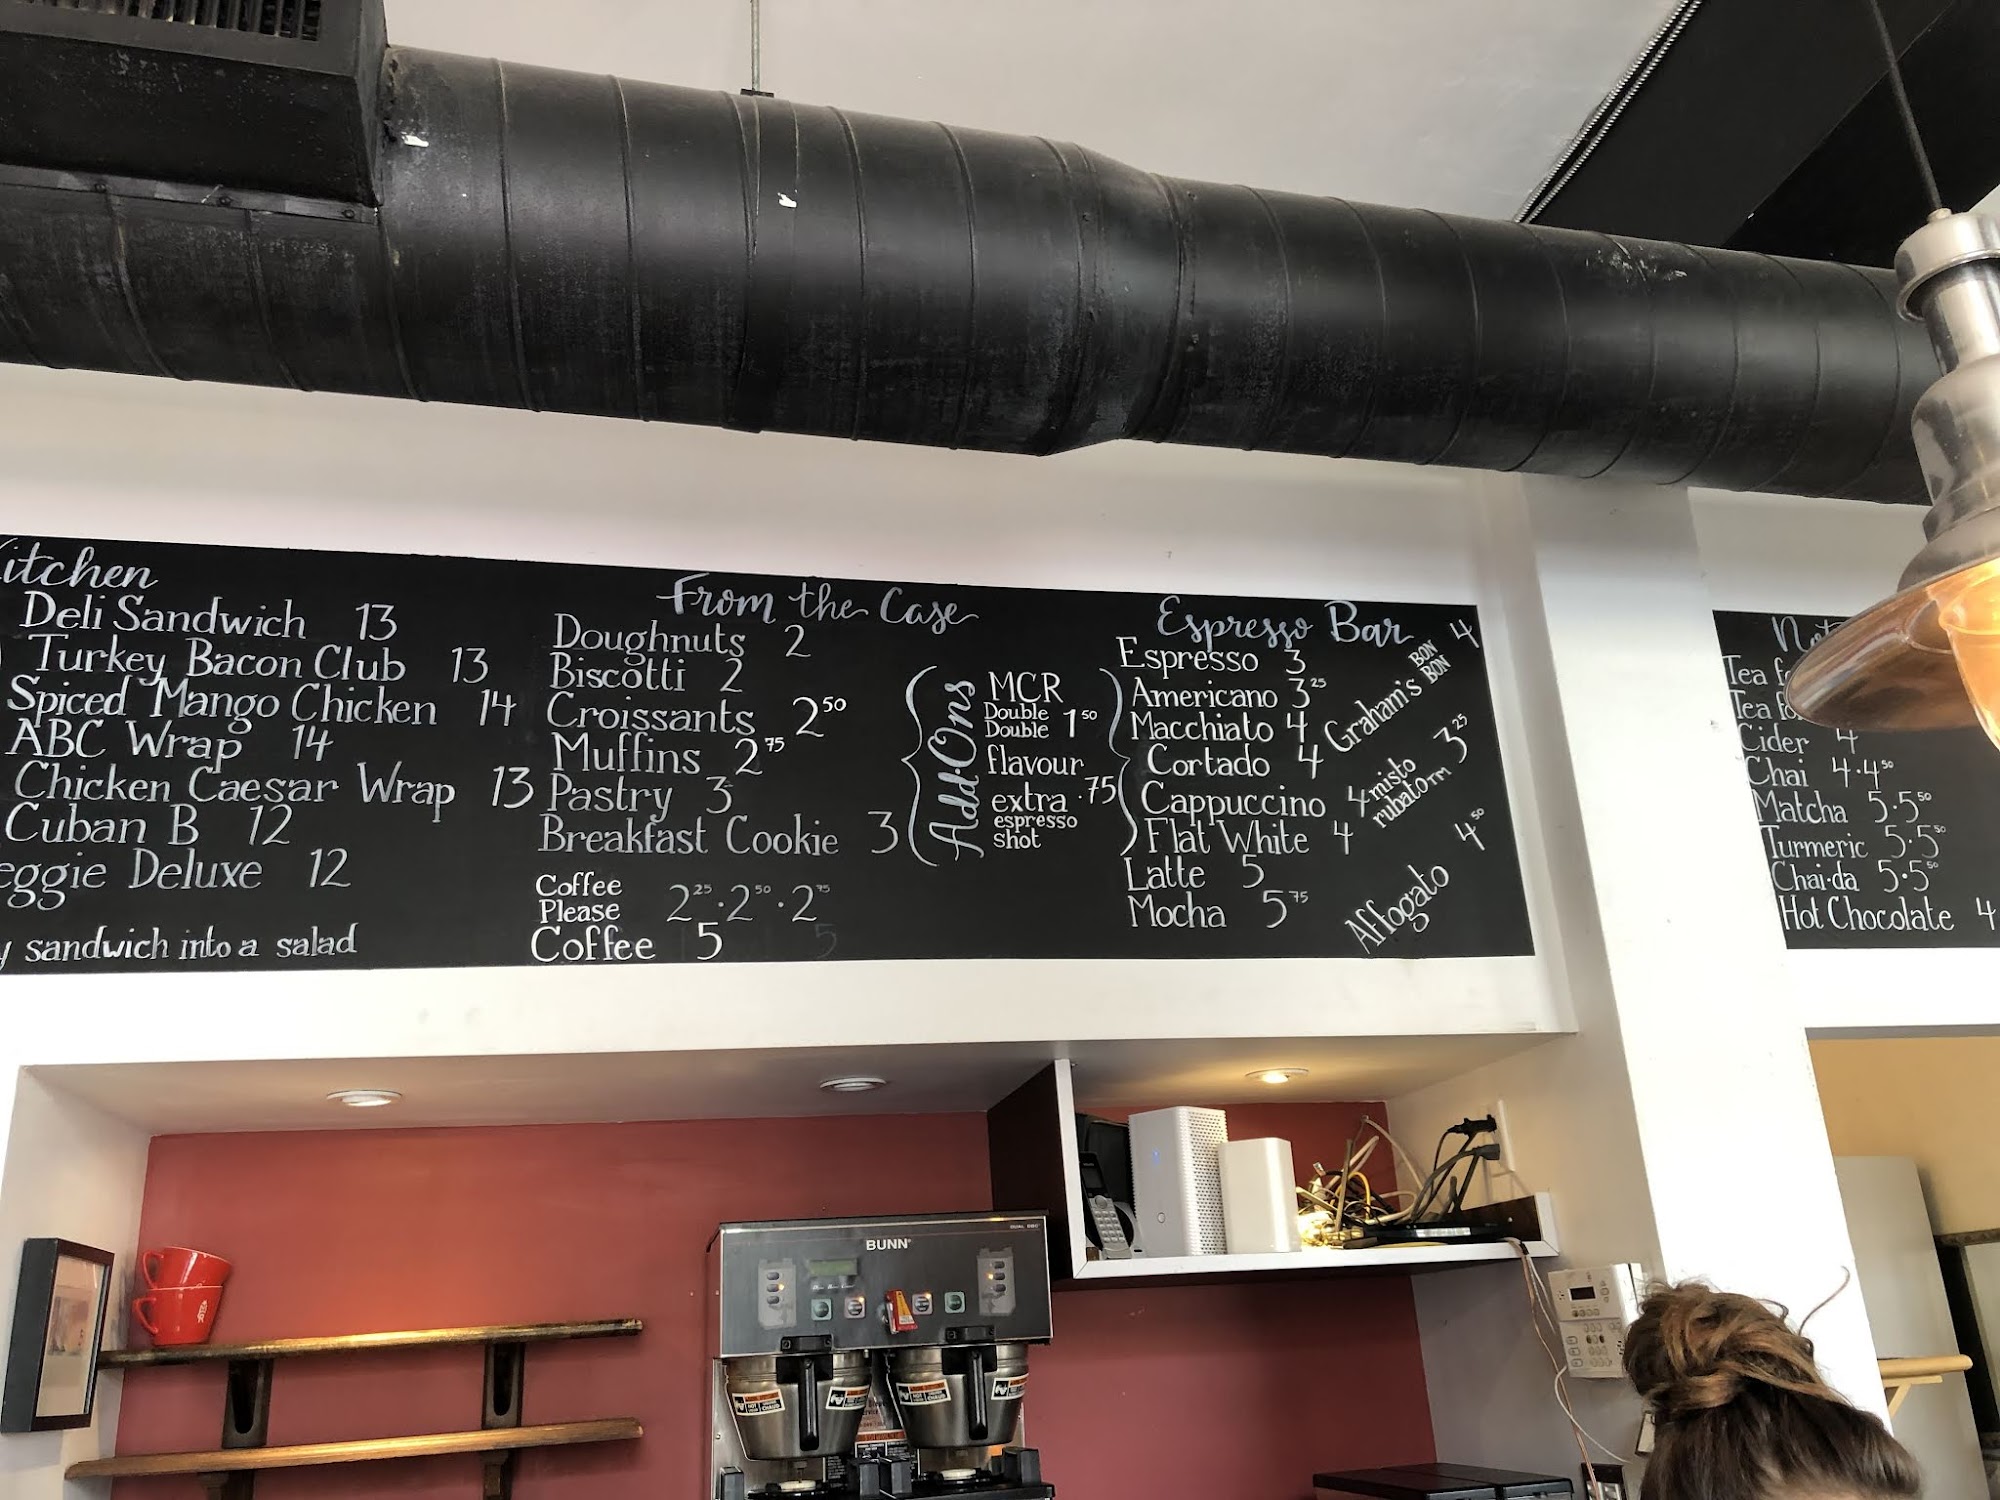 itchen
Deli Sandwich 13
Turkey Bacon Club 13
Spiced Mango Chicken 14
ABC Wrap 14
Chicken Caesar Wrap 13
Cuban B 12
eggie Deluxe 12
y sandwich into a salad
From the Case
Doughnuts 2
Biscotti 2
Croissants 2 50
Muffins 2 75
Pastry 3
Breakfast Cookie 3
Coffee
Please 2 25 · 2 50 · 2 75
Coffee 5
Add·Ons
MCR
Double
Double 1 50
flavour
extra .75
espresso
shot
Espresso Bar
Espresso 3
Americano 3 25
Macchiato 4
Cortado 4
Cappuccino 4
Flat White 4
Latte 5
Mocha 5 75
Graham's BON BON 4
misto
rubato™ 3 25
Affogato 4 50
Tea
Tea
Cider 4
Chai 4·4 50
Matcha 5·5 50
Turmeric 5·5 50
Chai·da 5·5 50
Hot Chocolate 4
BUNN